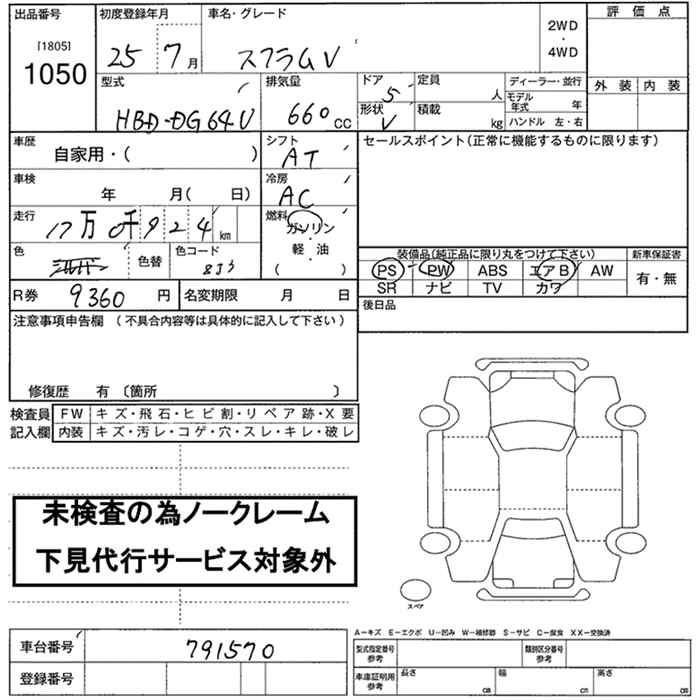 出品番号
[1805]
1050
初度登録年月
25 7月
車名・グレード
スクラムV
2WD
・
4WD
評価点
外装 内装
型式
HBD-DG64V
排気量
660cc
ドア
5
形状
V
定員
人
積載
kg
ディーラー・並行
モデル年式 年
ハンドル 左・右
車歴
自家用・( )
シフト
AT
セールスポイント(正常に機能するものに限ります)
車検
年 月( 日)
冷房
AC
走行
17万0千924km
燃料
ガソリン
軽・油
( )
色
シルバー
色替
色コード
装備品(純正品に限り丸をつけて下さい)
PS PW ABS エアB AW
SR ナビ TV カワ
新車保証書
有・無
R券 9360円
名変期限 月 日
後日品
注意事項申告欄 (不具合内容等は具体的に記入して下さい)
修復歴 有 〔箇所 〕
検査員記入欄
FW キズ・飛石・ヒビ割・リペア跡・X要
内装 キズ・汚レ・コゲ・穴・スレ・キレ・破レ
未検査の為ノークレーム
下見代行サービス対象外
スペア
A-キズ E-エクボ U-凹み W-補修跡 S-サビ C-腐食 XX-交換済
車台番号 791570
登録番号
型式指定番号参考
類別区分番号参考
車庫証明用参考
長さ cm
幅 cm
高さ cm